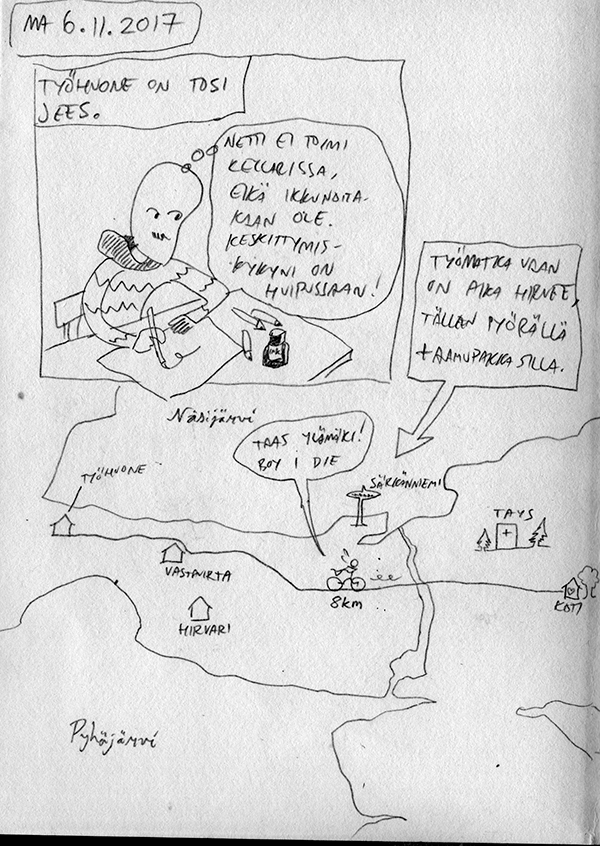 MA 6.11.2017
TYÖHUONE ON TOSI
JEES.
NETTI EI TOIMI
KELLARISSA,
EIKÄ IKKUNOITA-
KAAN OLE.
KESKITTYMIS-
KYKYNI ON
HUIPUSSAAN!
INK
TYÖMATKA VAAN
ON AIKA HIRVEE,
TÄLLEN PYÖRÄLLÄ
+ AAMUPAKKASILLA.
Näsijärvi
TAAS YLÄMÄKI!
BOY I DIE
TYÖHUONE
SÄRKÄNNIEMI
TAYS
VASTAVIRTA
8km
KOTI
HIRVARI
Pyhäjärvi